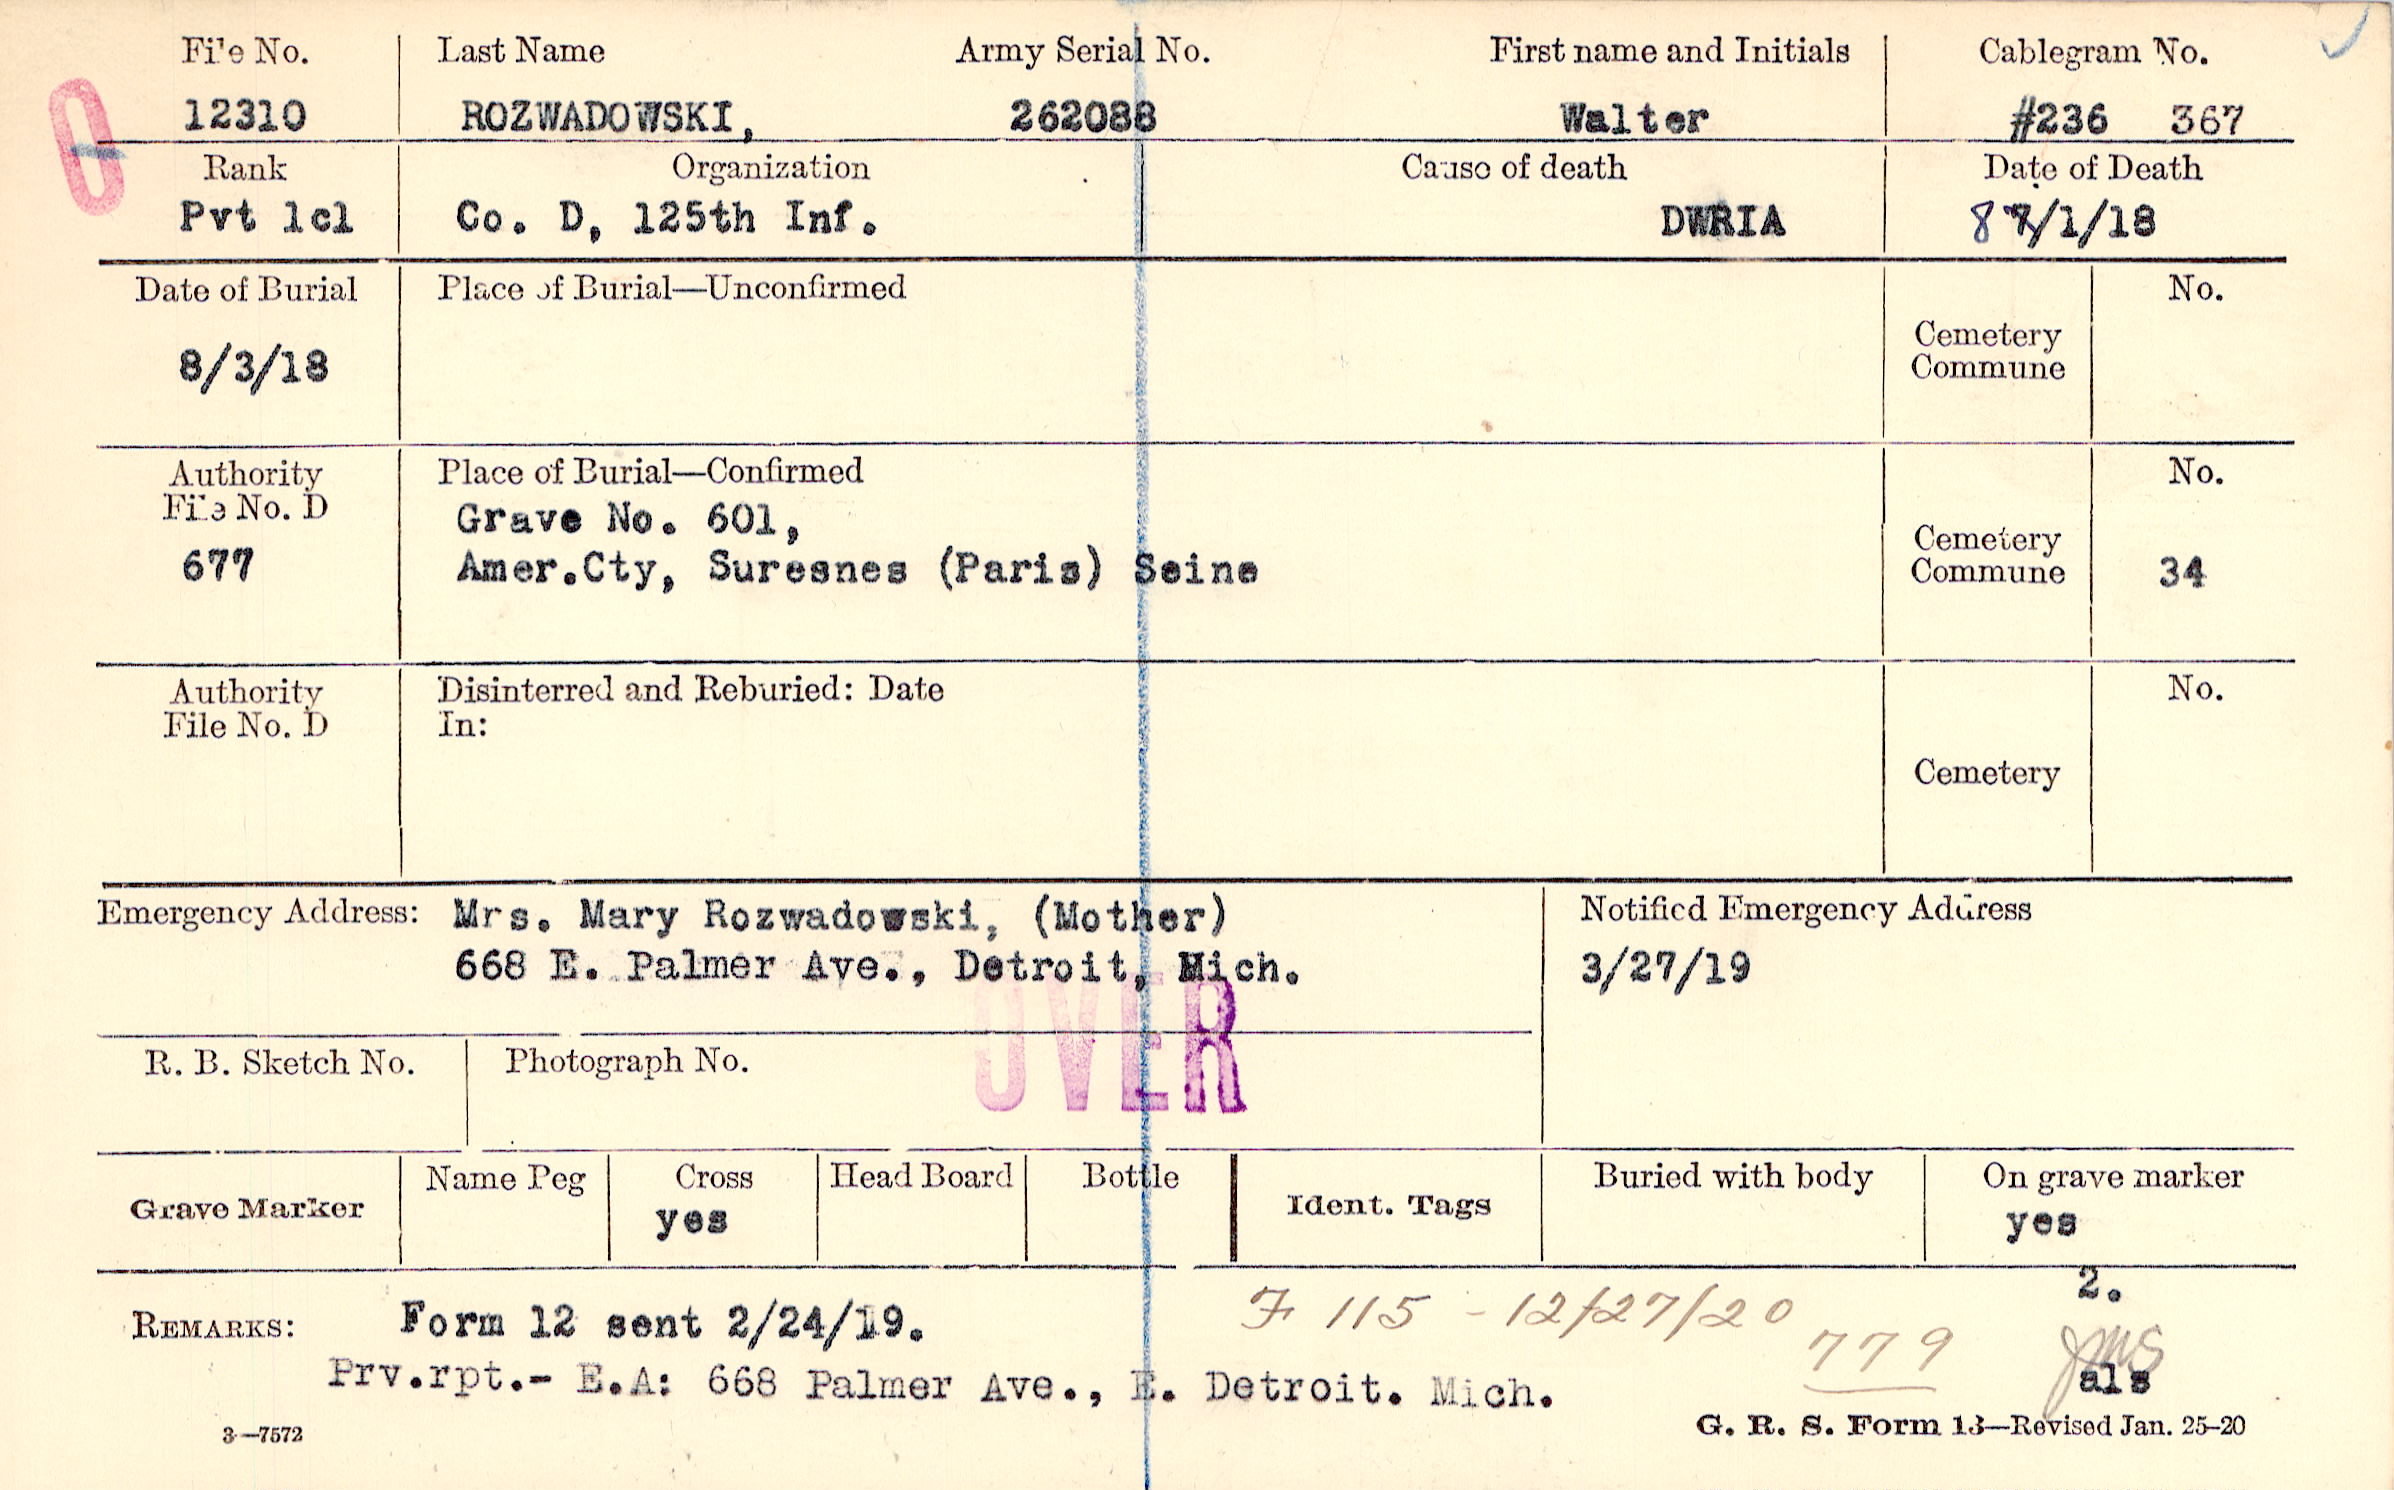 File No. Last Name Army Serial No. First name and Initials Cablegram No.
12310 ROZWADOWSKI, 262088 Walter #236 367
Rank Organization Cause of death Date of Death
Pvt 1cl Co. D, 125th Inf. DWRIA 8 7/1/18
Date of Burial Place of Burial—Unconfirmed No.
Cemetery
Commune
8/3/18
Authority Place of Burial—Confirmed No.
File No. D
Grave No. 601,
Cemetery
677 Amer.Cty, Suresnes (Paris) Seine Commune 34
Authority Disinterred and Reburied: Date No.
File No. D In:
Cemetery
Emergency Address: Mrs. Mary Rozwadowski, (Mother) Notified Emergency Address
668 E. Palmer Ave., Detroit, Mich. 3/27/19
OVER
R. B. Sketch No. Photograph No.
Grave Marker Name Peg Cross Head Board Bottle Ident. Tags Buried with body On grave marker
yes yes
2.
REMARKS: Form 12 sent 2/24/19. F 115 - 12/27/20
779
JMS
Prv.rpt.- E.A: 668 Palmer Ave., E. Detroit. Mich. als
3—7572 G. R. S. Form 13—Revised Jan. 25-20